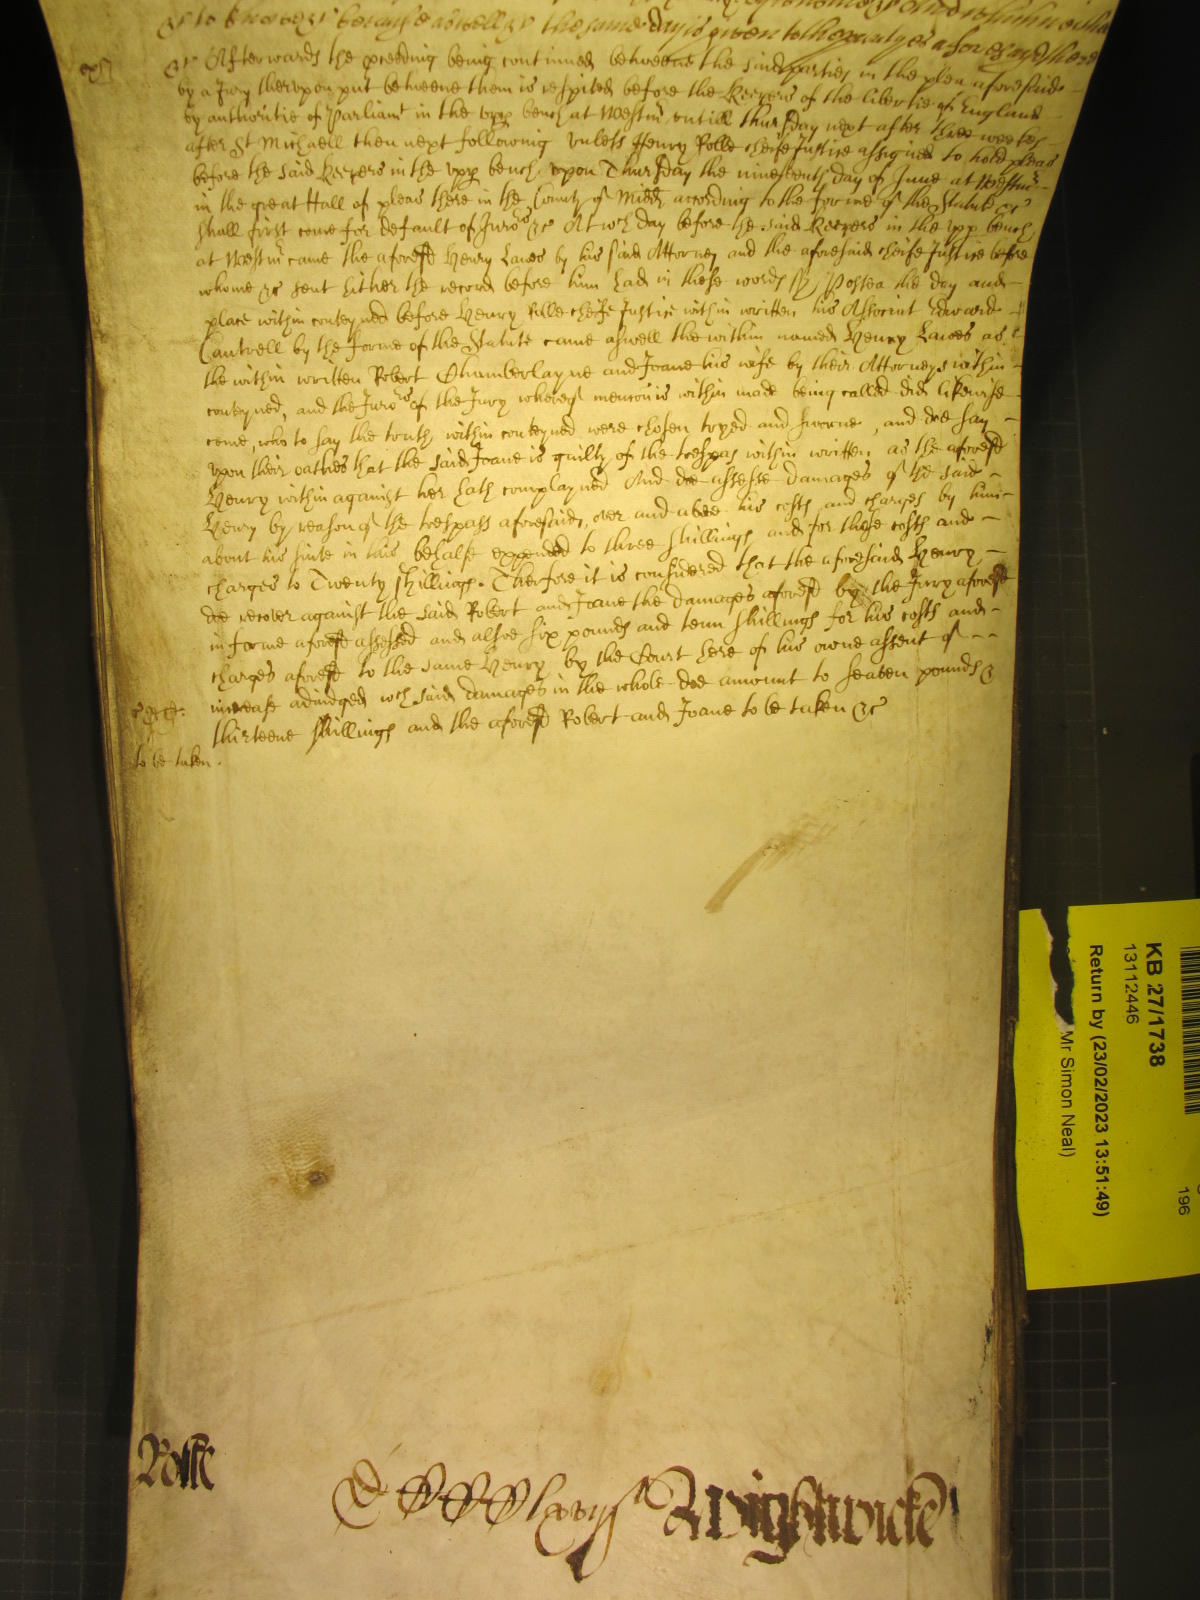 &c to the same day is given to the partyes aforesaid there
&c Afterwards the proceeding being continued betweene the said parties in the plea aforesaid
by a Jury thereupon put betweene them is respited before the Keepers of the libertie of England
by authoritie of Parliamt in the vpp bench at Westmr vntill thursday next after three weekes
after St Michaell then next following vnless Henry Rolle cheife Justice assigned to hold pleas
before the said Keepers in the vpp bench vpon Thursday the nineteenth day of June at Westmr
in the great Hall of pleas there in the County of Midd according to the forme of the Statute &c
shall first come for default of Jurors &c At wch day before the said Keepers in the vpp bench
at Westmr came the aforesd Henry Lawes by his said Attorney and the aforesaid cheife Justice before
whome &c sent hither the record before him had in these words ss Postea the day and
place within conteyned before Henry Rolle cheife Justice within written his Associat Edward
Cantrell by the forme of the Statute came aswell the within named Henry Lawes as
the within written Robert Chamberlayne and Joane his wife by their Attorneys within
conteyned, and the Jurors of the Jury whereof mencon is within made being called did likewise
come, who to say the truth within conteyned were chosen tryed and sworne, and doe say
vpon their oathes that the said Joane is guilty of the trespas within written as the aforesd
Henry within against her hath complayned And doe assesse damages of the said
Henry by reason of the trespass aforesaid, over and above his costs and charges by him
about his suite in this behalfe expended to three shillings and for those costs and
charges to Twenty shillings. Therfore it is considered that the aforesaid Henry
doe recover against the said Robert and Joane the damages aforesd by the Jury aforesd
in forme aforesd assessed and alsoe six pounds and tenn shillings for his costs and
charges aforesd to the same Henry by the Court here of his owne assent of
increase adiudged wch said damages in the whole doe amount to seaven pounds &
thirteene shillings and the aforesd Robert and Joane to be taken &c
to be taken.
KB 27/1738
13112446
Return by (23/02/2023 13:51:49)
Mr Simon Neal)
196
Rolle
Wightwicke